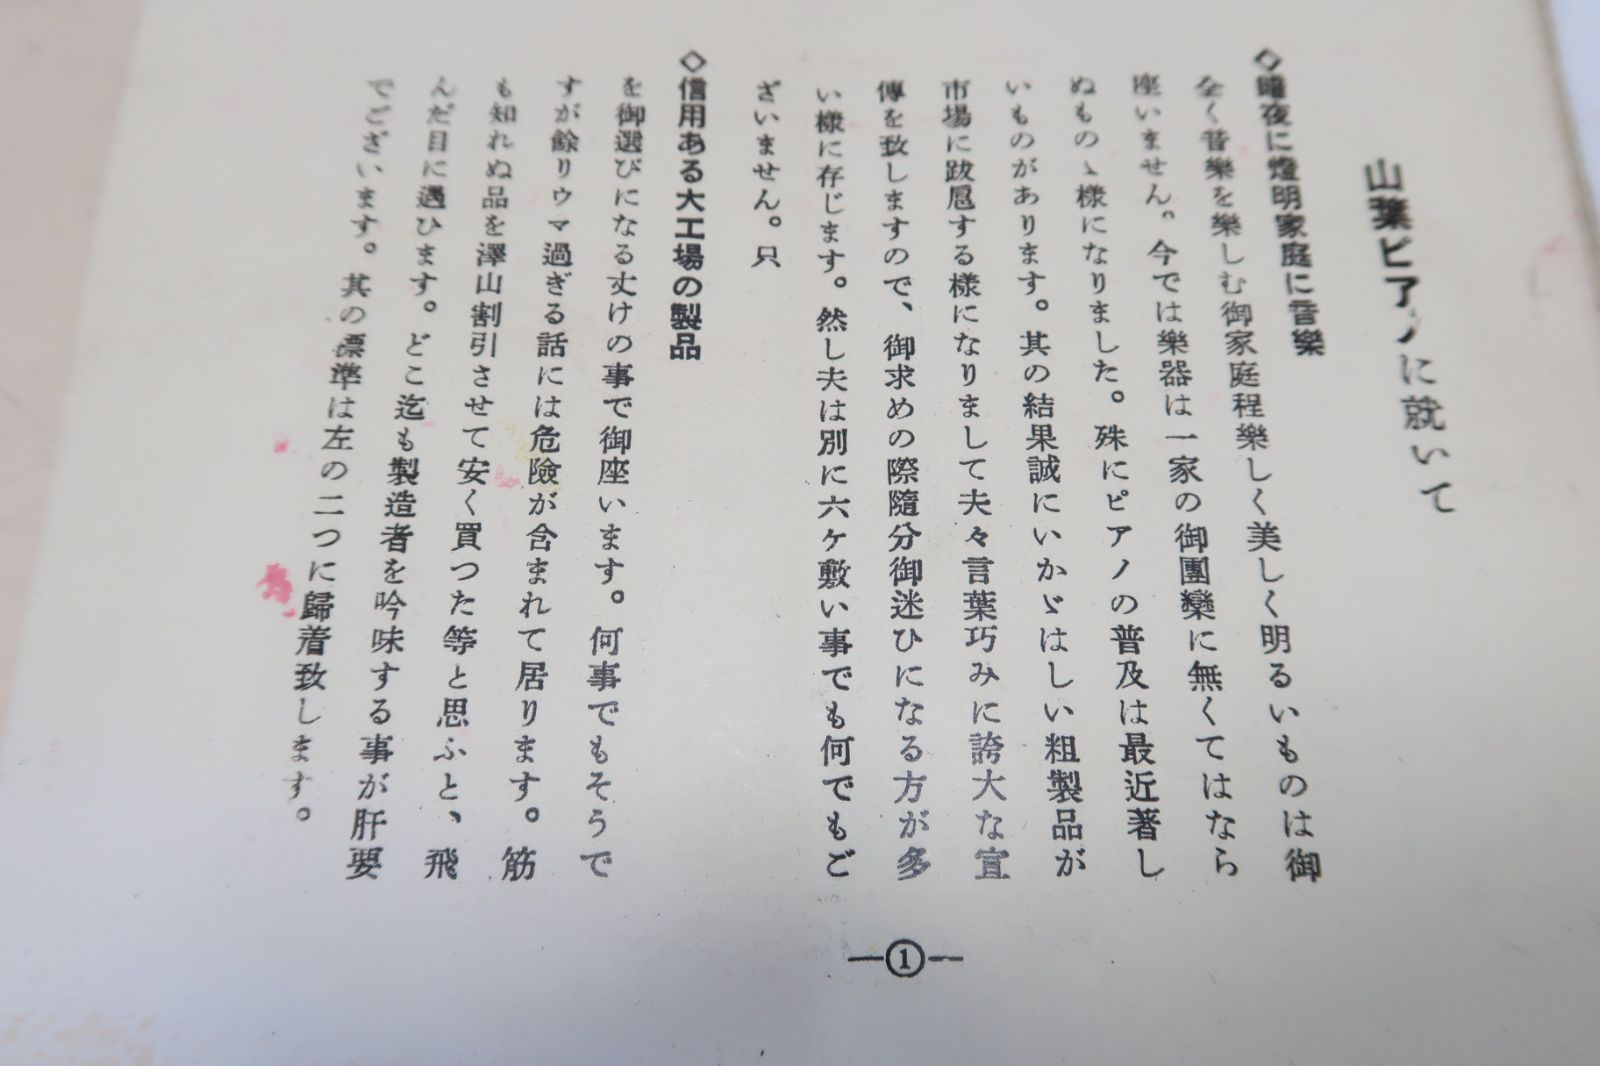 山葉ピアノに就いて
◇暗夜に燈明家庭に音樂
全く音樂を樂しむ御家庭程樂しく美しく明るいものは御
座いません。今では樂器は一家の御團欒に無くてはなら
ぬものゝ樣になりました。殊にピアノの普及は最近著し
いものがあります。其の結果誠にいかゞはしい粗製品が
市場に跋扈する樣になりまして夫々言葉巧みに誇大な宣
傳を致しますので、御求めの際隨分御迷ひになる方が多
い樣に存じます。然し夫は別に六ケ敷い事でも何でもご
ざいません。只
◇信用ある大工場の製品
を御選びになる丈けの事で御座います。何事でもそうで
すが餘りウマ過ぎる話には危險が含まれて居ります。筋
も知れぬ品を澤山割引させて安く買つた等と思ふと、飛
んだ目に遇ひます。どこ迄も製造者を吟味する事が肝要
でございます。其の標準は左の二つに歸着致します。
—①—